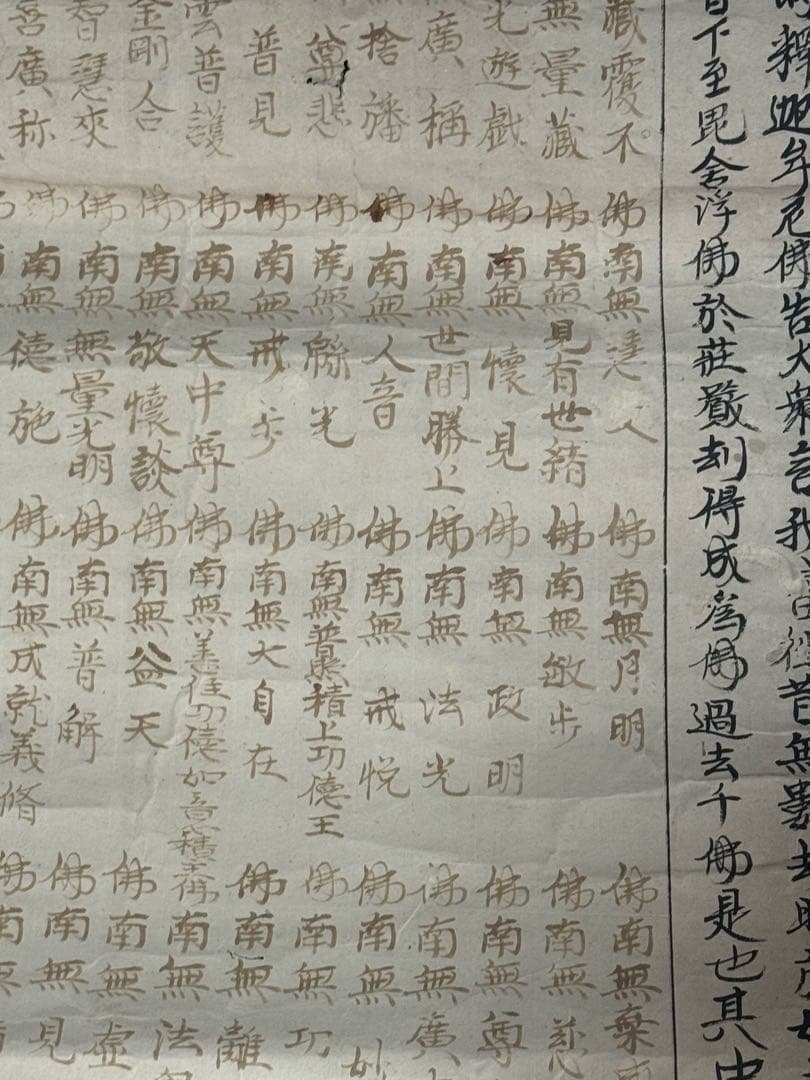 釋迦牟尼佛告大衆言我往昔無數劫時
下至毘舍浮佛於莊嚴刧得成為佛過去千佛是也其中
藏覆不佛南無佛南無月明佛南無棄
無量藏佛南無見有世緒佛南無敏步佛南無慈
光遊戲佛南無懷見佛南無政明佛南無尊
廣稱佛南無世間勝上佛南無法光佛南無廣
捨旛佛南無人音佛南無戒悅佛南無妙
悲佛南無緜光佛南無普照積上功德王佛南無功
普見佛南無戒步佛南無大自在佛南無離
雲普護佛南無天中尊佛南無善住功德如意積王佛南無法
金剛合佛南無敬懷談佛南無益天佛南無虛
智慧來佛南無無量光明佛南無普解佛南無見
善廣称佛南無德施佛南無成就義脩佛南無